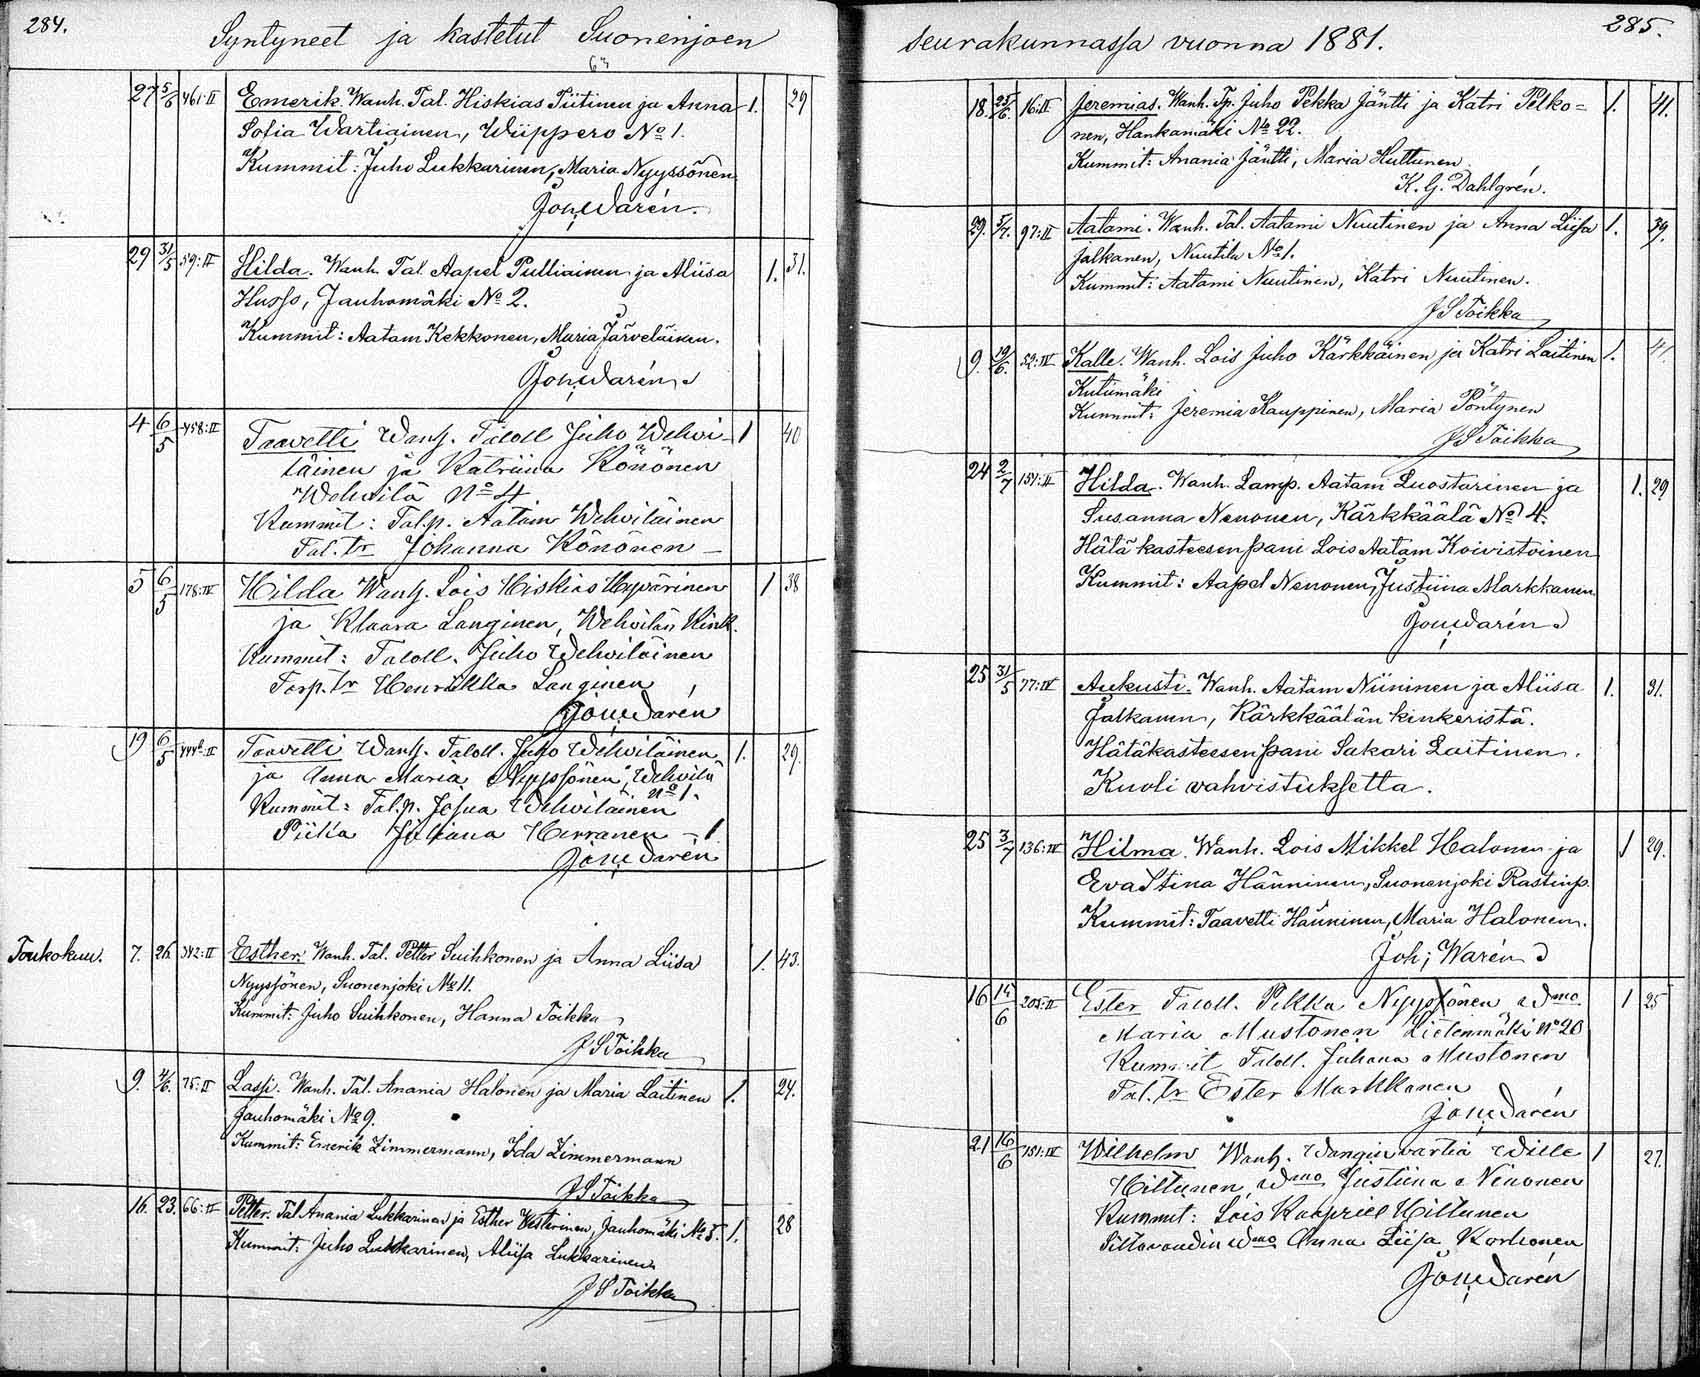 284.
Syntyneet ja kastetut Suonenjoen
27 5/6 461:II Emerik. Wanh. Tal. Hiskias Tiitinen ja Anna 1. 29
Sofia Wartiainen, Wiippero No 1.
Kummit: Juho Lukkarinen, Maria Nyyssönen.
Joh; Warén.
29 31/5 59:II Hilda. Wanh. Tal. Aapel Pulliainen ja Aliisa 1. 31.
Husso, Jauhomäki No 2.
Kummit: Aatam Kekkonen, Maria Järveläinen.
Joh; Warén
4 6/5 458:II Taavetti Wanh. Taloll Juho Wehvi- 1 40
läinen ja Katriina Könönen
Wehvilä No 4
Kummit: Tal.p. Aatam Wehviläinen
Tal. tr Johanna Könönen —
5 6/5 178:IV Hilda Wanh. Lois Hiskias Hyvärinen 1 38
ja Klaara Langinen, Wehvilän Kink.
Kummit: Taloll. Juho Wehviläinen
Torp. tr Henriikka Langinen
Joh; Warén
19 6/5 II Taavetti Wanh. Taloll. Juho Wehviläinen 1. 29.
ja Anna Maria Nyyssönen, Wehvilä
No 1.
Kummit: Tal.p. Josua Wehviläinen
Piika Juliana Hirranen — 1
Joh; Warén
Toukokuu. 7. 26. 342:II Esther. Wanh. Tal. Petter Suihkonen ja Anna Liisa 1. 43.
Nyyssönen, Suonenjoki No 11.
Kummit: Juho Suihkonen, Hanna Toikka
J S Toikka
9. 4/6. 75:II Lassi. Wanh. Tal. Anania Halonen ja Maria Laitinen 1. 24.
Jauhomäki No 9.
Kummit: Emerik Zimmermann, Ida Zimmermann
J S Toikka
16. 23. 66:II Petter. Tal Anania Lukkarinen ja Esther Westerinen, Jauhomäki No 5. 1. 28
Kummit: Juho Lukkarinen, Aliisa Lukkarinen
J S Toikka
285.
seurakunnassa vuonna 1881.
18. 25/6. 16:II Jeremias. Wanh. Tp. Juho Pekka Jäntti ja Katri Pelko= 1. 41.
nen, Hankamäki No 22.
Kummit: Anania Jäntti, Maria Huttunen.
K. G. Dahlgrén.
29. 5/7. 97:II Aatami. Wanh. Tal. Aatami Nuutinen ja Anna Liisa 1. 39.
Jalkanen, Nuutila No 1.
Kummit: Aatami Nuutinen, Katri Nuutinen.
J S Toikka
9. 19/6. 52:IV Kalle. Wanh. Lois Juho Kärkkäinen ja Katri Laitinen 1. 41.
Kutumäki
Kummit: Jeremia Kauppinen, Maria Pöntynen
J S Toikka
24 2/7 151:II Hilda. Wanh. Lamp. Aatam Luostarinen ja 1. 29
Susanna Nenonen, Kärkkäälä No 4.
Hätäkasteesen pani Lois Aatam Koivistoinen
Kummit: Aapel Nenonen, Justiina Markkanen.
Joh; Warén
25 31/5 77:IV Aukusti. Wanh. Aatam Niininen ja Aliisa 1. 31.
Jalkanen, Kärkkäälän kinkeristä.
Hätäkasteesen pani Sakari Laitinen.
Kuoli vahvistuksetta.
25 3/7 136:IV Hilma. Wanh. Lois Mikkel Halonen ja 1 29.
Eva Stina Hänninen, Suonenjoki Rastinp.
Kummit: Taavetti Hänninen, Maria Halonen.
Joh; Warén
16 14/6 205:II Ester Taloll. Pekka Nyyssönen Wmo 1 25
Maria Mustonen Lietenmäki No 20
Kummit Taloll. Juhana Mustonen
Tal. tr Ester Markkanen
Joh; Warén
21 16/6 151:IV Wilhelm Wanh. Wanginvartia Wille 1 27.
Hiltunen, Wmo Justiina Nenonen
Kummit: Lois Kaapriel Hiltunen
Siltavoudin Wmo Anna Liisa Korhonen
Joh; Warén